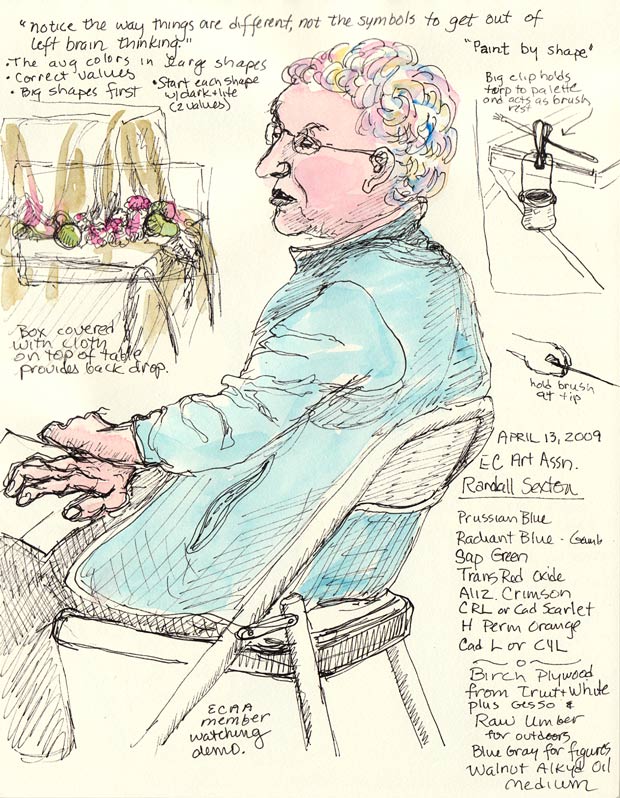 "notice the way things are different, not the symbols to get out of
left brain thinking."
• The avg colors in large shapes
• Correct values
• Big shapes first
• Start each shape
w/dark + lite
(2 values)
"Paint by shape"
Big clip holds
tarp to palette
and acts as brush
rest
Box covered
with cloth
on top of table
provides back drop.
hold brush
at tip
APRIL 13, 2009
EC Art Assn.
Randall Sexton
Prussian Blue
Radiant Blue - Gamb
Sap Green
Trans Red Oxide
Aliz. Crimson
CRL or Cad Scarlet
H Perm Orange
Cad L or CYL
Birch Plywood
from Iruit + White
plus Gesso &
Raw Umber
for outdoors
Blue Gray for figures
Walnut Alkyd Oil
medium
ECAA
member
watching
demo.